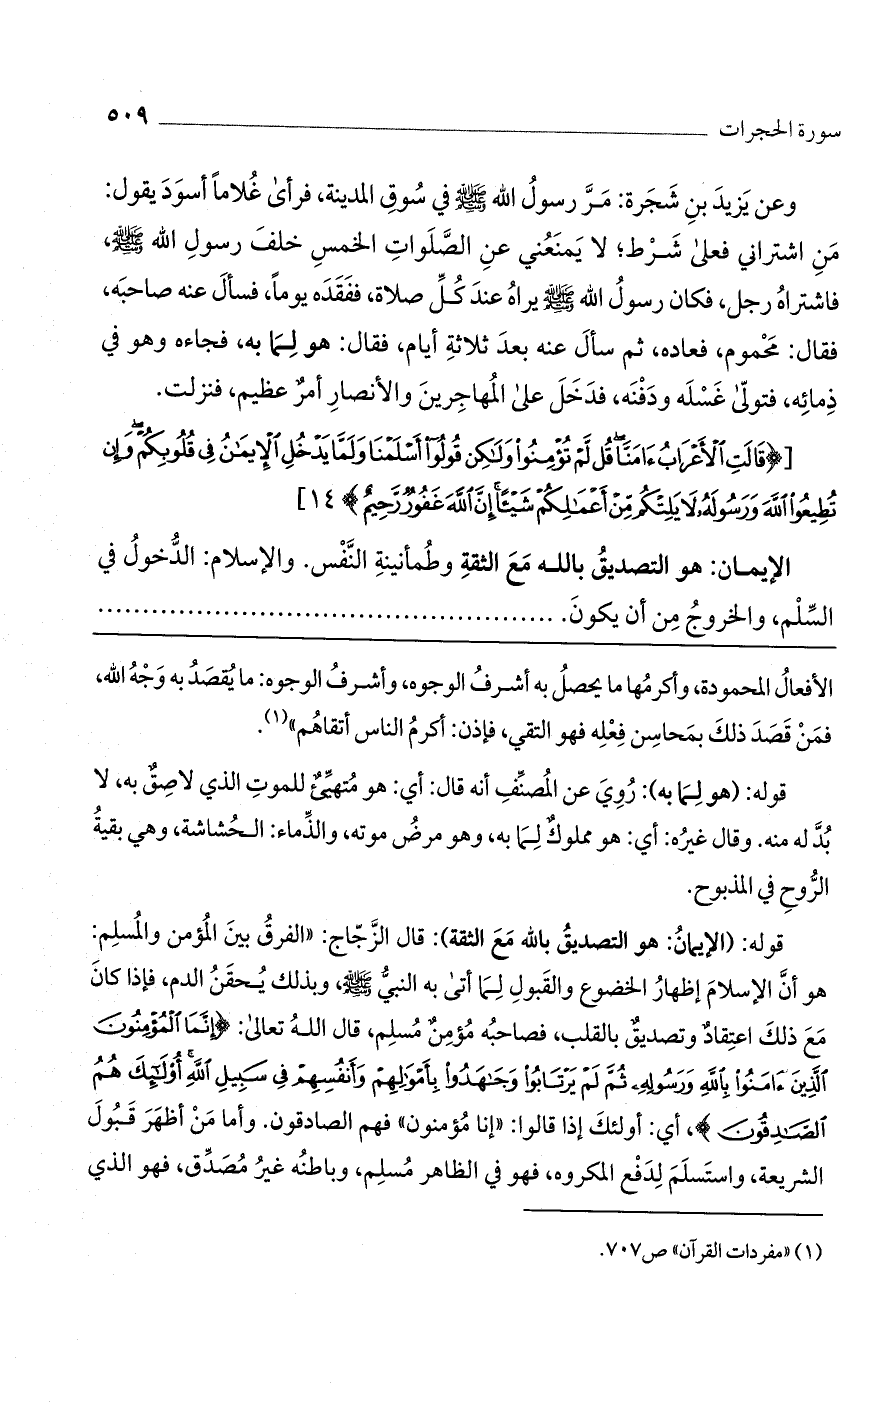 سورة الحجرات ٥٠٩
وعن يَزيدَ بنِ شَجَرة: مَـرَّ رسولُ الله ﷺ في سُوقِ المدينة، فرأىٰ غُلاماً أسوَدَ يقول:
مَنِ اشتراني فعلىٰ شَـرْط؛ لا يَمنَعُني عنِ الصَّلَواتِ الخمسِ خلفَ رسولِ الله ﷺ،
فاشتراهُ رجل، فكان رسولُ الله ﷺ يراهُ عندَ كُـلِّ صلاة، ففَقَدَه يوماً، فسألَ عنه صاحبَه،
فقال: مَحْموم، فعاده، ثم سألَ عنه بعدَ ثلاثةِ أيام، فقال: هو لِـمَا به، فجاءه وهو في
ذِمائِه، فتولّىٰ غَسْلَه ودَفْنَه، فدَخَلَ علىٰ المُهاجِرينَ والأنصارِ أمرٌ عظيم، فنزلت.
[﴿قَالَتِ ٱلْأَعْرَابُ ءَامَنَّا ۖ قُل لَّمْ تُؤْمِنُوا۟ وَلَـٰكِن قُولُوٓا۟ أَسْلَمْنَا وَلَمَّا يَدْخُلِ ٱلْإِيمَـٰنُ فِى قُلُوبِكُمْ ۖ وَإِن
تُطِيعُوا۟ ٱللَّهَ وَرَسُولَهُۥ لَا يَلِتْكُم مِّنْ أَعْمَـٰلِكُمْ شَيْـًٔا ۚ إِنَّ ٱللَّهَ غَفُورٌ رَّحِيمٌ﴾ ١٤]
الإيمـان: هو التصديقُ باللـه مَعَ الثقةِ وطُمأنينةِ النَّفْس. والإسلام: الدُّخولُ في
السِّلْم، والخروجُ مِن أن يكونَ. ..................................................
الأفعالُ المحمودة، وأكرمُها ما يحصلُ به أشـرفُ الوجوه، وأشـرفُ الوجوه: ما يُقصَدُ به وَجْهُ الله،
فمَنْ قَصَدَ ذلكَ بمَحاسِن فِعْلِه فهو التقي، فإذن: أكرمُ الناس أتقاهُم»(١).
قوله: (هو لِـمَا به): رُوِيَ عن المُصنِّفِ أنه قال: أي: هو مُتهيِّئٌ للموتِ الذي لاصِقٌ به، لا
بُدَّ له منه. وقال غيرُه: أي: هو مملوكٌ لِـمَا به، وهو مرضُ موته، والذِّماء: الـحُشاشة، وهي بقيةُ
الرُّوحِ في المذبوح.
قوله: (الإيمانُ: هو التصديقُ بالله مَعَ الثقة): قال الزَّجّاج: «الفرقُ بينَ المُؤمن والمُسلِم:
هو أنَّ الإسلامَ إظهارُ الخضوع والقَبولِ لِـمَا أتىٰ به النبيُّ ﷺ، وبذلك يُـحقَنُ الدم، فإذا كانَ
مَعَ ذلكَ اعتِقادٌ وتصديقٌ بالقلب، فصاحبُه مُؤمِنٌ مُسلِم، قال اللـهُ تعالىٰ: ﴿إِنَّمَا ٱلْمُؤْمِنُونَ
ٱلَّذِينَ ءَامَنُوا۟ بِٱللَّهِ وَرَسُولِهِۦ ثُمَّ لَمْ يَرْتَابُوا۟ وَجَـٰهَدُوا۟ بِأَمْوَٰلِهِمْ وَأَنفُسِهِمْ فِى سَبِيلِ ٱللَّهِ ۚ أُو۟لَـٰٓئِكَ هُمُ
ٱلصَّـٰدِقُونَ﴾، أي: أولئكَ إذا قالوا: «إنا مُؤمنون» فهم الصادقون. وأما مَنْ أظهَرَ قَـبُولَ
الشريعة، واستَسلَمَ لِدَفْعِ المكروه، فهو في الظاهر مُسلِم، وباطنُه غيرُ مُصَدِّق، فهو الذي
(١) «مفردات القرآن» ص٧٠٧.